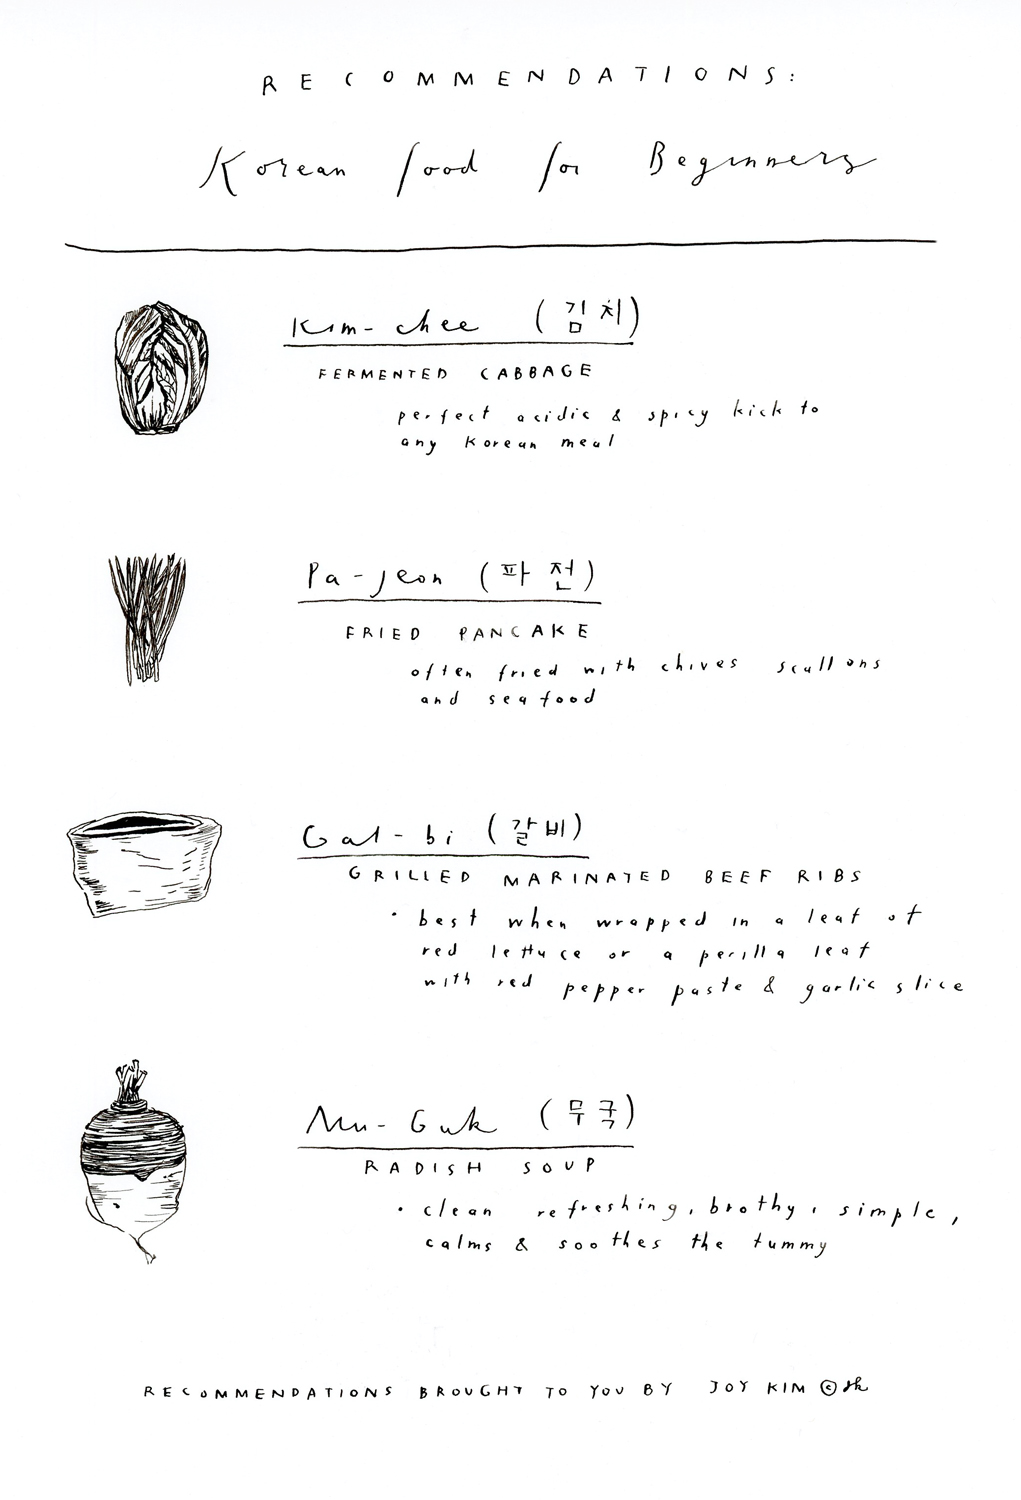 RECOMMENDATIONS:
Korean food for Beginners
Kim-chee (김치)
FERMENTED CABBAGE
perfect acidic & spicy kick to
any Korean meal
Pa-jeon (파전)
FRIED PANCAKE
often fried with chives scallions
and seafood
Gal-bi (갈비)
GRILLED MARINATED BEEF RIBS
• best when wrapped in a leaf of
red lettuce or a perilla leaf
with red pepper paste & garlic slice
Mu-Guk (무국)
RADISH SOUP
• clean refreshing, brothy, simple,
calms & soothes the tummy
RECOMMENDATIONS BROUGHT TO YOU BY JOY KIM ©